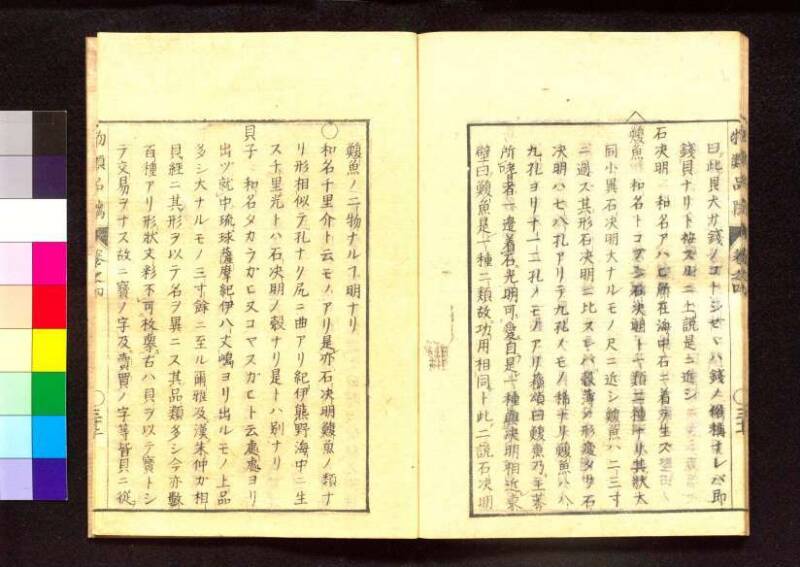 曰此貝大サ錢ノコトシせハ錢ノ俗稱ナレバ即
錢貝ナリト按スルニ上説是ニ近シ
石决明 和名アハヒ所在海中石ニ着テ生ズ
鰒魚 和名トコブシ石決明ト一類二種ナリ其狀大
同小異石决明大ナルモノ尺ニ近シ鰒魚ハ二三寸
ニ過ズ其形石决明ニ比スレバ殻薄ク形 石
决明ハ七八孔アリテ九孔ノモノ稀ナリ鰒魚ハ八
九孔ヨリ十一二孔ノモノアリ蘇頌曰鰒魚乃王莽
所嗜者一邊着石光明可愛自是一種與决明相近
壁曰鰒魚是一種二類故功用相同ト此二説石决明
鰒魚ノ二物ナルヿ明ナリ
〇和名千里介ト云モノアリ是亦石决明鰒魚ノ類ナ
リ形相似テ孔ナリ尻ニ曲アリ紀伊熊野海中ニ生
ス千里光トハ石决明ノ殻ナリ是トハ別ナリ
貝子 和名タカラガヒ又コヤスガヒト云處處ヨリ
出ヅ就中琉球薩摩紀伊八丈嶋ヨリ出ルモノ上品
多シ大ナルモノ三寸餘ニ至ル爾雅及漢朱仲ガ相
貝經ニ其形ヲ以テ名ヲ異ニス其品類多シ今亦數
百種アリ形狀文彩不可枚擧古ハ貝ヲ以テ寶トシ
テ交易ヲナス故ニ寶ノ字及賣買ノ字等皆貝ニ從